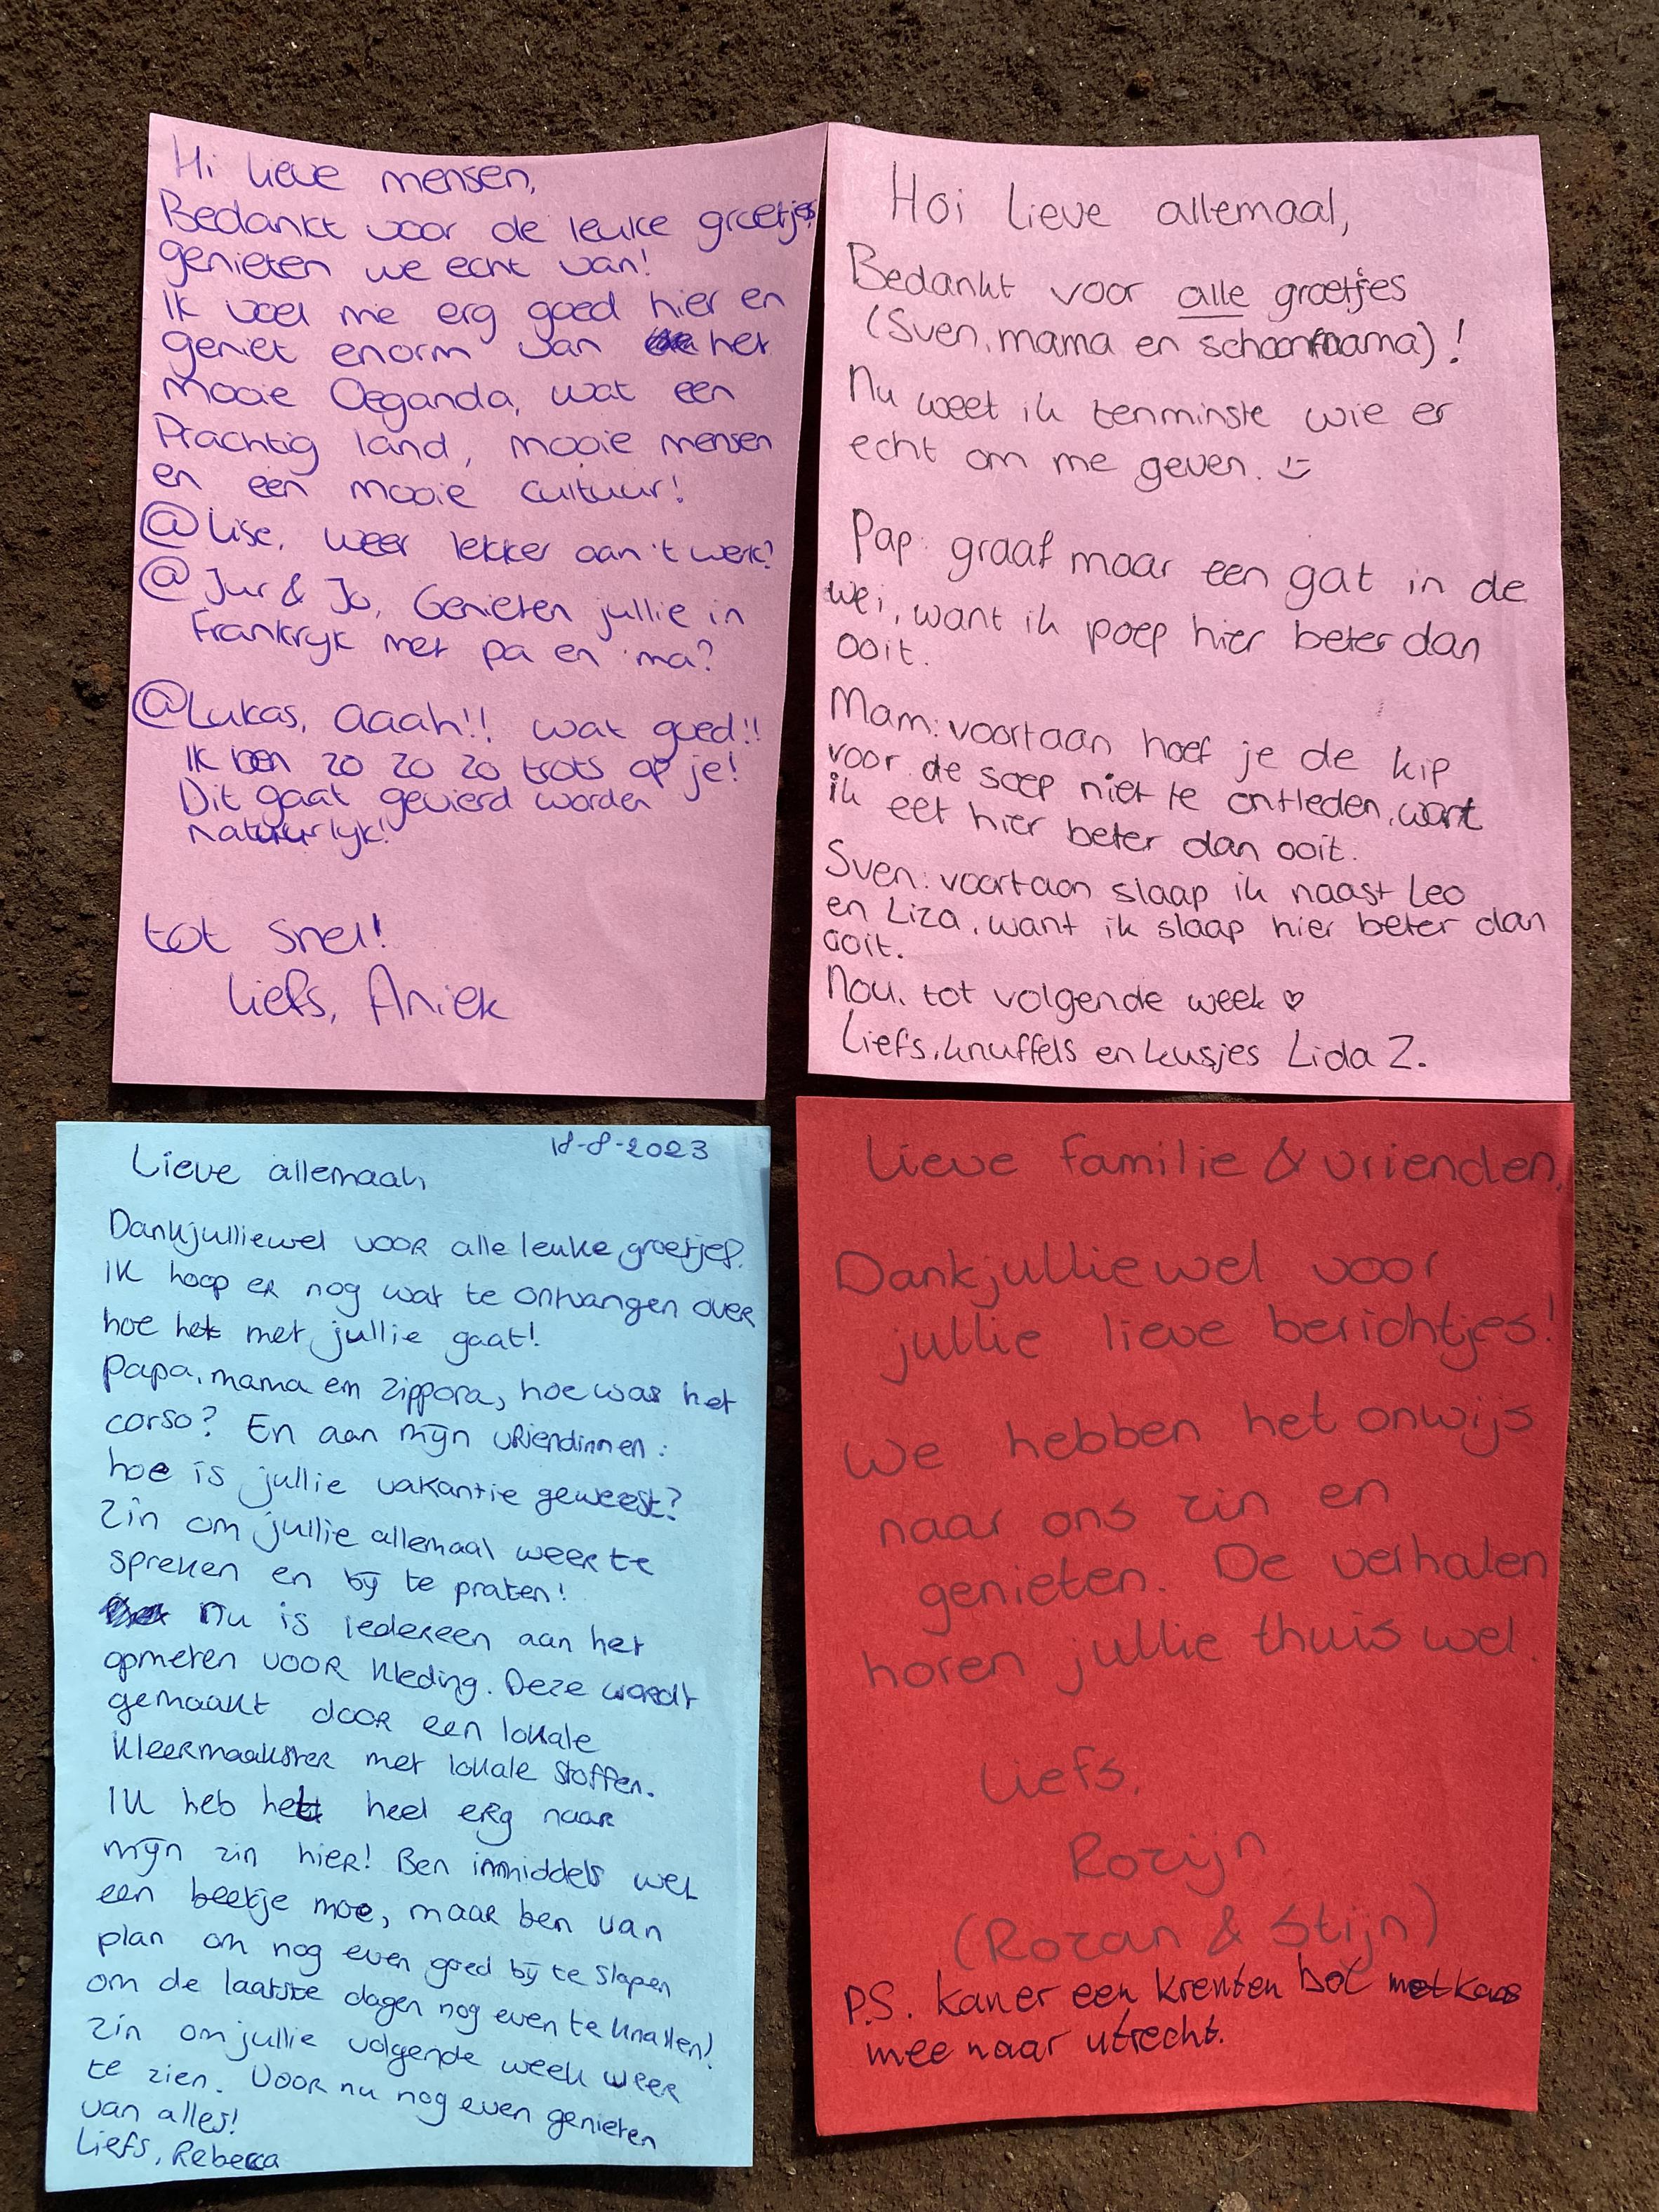 Hi lieve mensen,
Bedankt voor de leuke groetjes
genieten we echt van!
Ik voel me erg goed hier en
geniet enorm van het
mooie Oeganda, wat een
Prachtig land, mooie mensen
en een mooie cultuur!
@Lise, weer lekker aan 't werk?
@Jur & Jo, Genieten jullie in
Frankryk met pa en ma?
@Lukas, aaah!! wat goed!!
Ik ben zo zo zo trots op je!
Dit gaat gevierd worden
natuurlyk!
tot snel!
Liefs, Aniek
Hoi lieve allemaal,
Bedankt voor alle groetjes
(Sven, mama en schoonmama)!
Nu weet ik tenminste wie er
echt om me geven. :)
Pap: graaf maar een gat in de
wei, want ik poep hier beter dan
ooit.
Mam: voortaan hoef je de kip
voor de soep niet te ontleden, want
ik eet hier beter dan ooit.
Sven: voortaan slaap ik naast Leo
en Liza, want ik slaap hier beter dan
ooit.
Nou, tot volgende week ♡
Liefs, knuffels en kusjes Lida Z.
18-8-2023
Lieve allemaal,
Dankjulliewel voor alle leuke groetjes.
Ik hoop er nog wat te ontvangen over
hoe het met jullie gaat!
Papa, mama en Zippora, hoe was het
corso? En aan mijn vriendinnen:
hoe is jullie vakantie geweest?
Zin om jullie allemaal weer te
spreken en bij te praten!
Nu is iedereen aan het
opmeten voor kleding. Deze wordt
gemaakt door een lokale
kleermaakster met lokale stoffen.
Ik heb het heel erg naar
mijn zin hier! Ben inmiddels wel
een beetje moe, maar ben van
plan om nog even goed bij te slapen
om de laatste dagen nog even te knallen!
Zin om jullie volgende week weer
te zien. Voor nu nog even genieten
van alles!
Liefs, Rebecca
Lieve familie & vrienden,
Dankjulliewel voor
jullie lieve berichtjes!
We hebben het onwijs
naar ons zin en
genieten. De verhalen
horen jullie thuis wel.
Liefs,
Rozijn
(Rozan & Stijn)
P.S. kan er een krenten bol met kaas
mee naar utrecht.